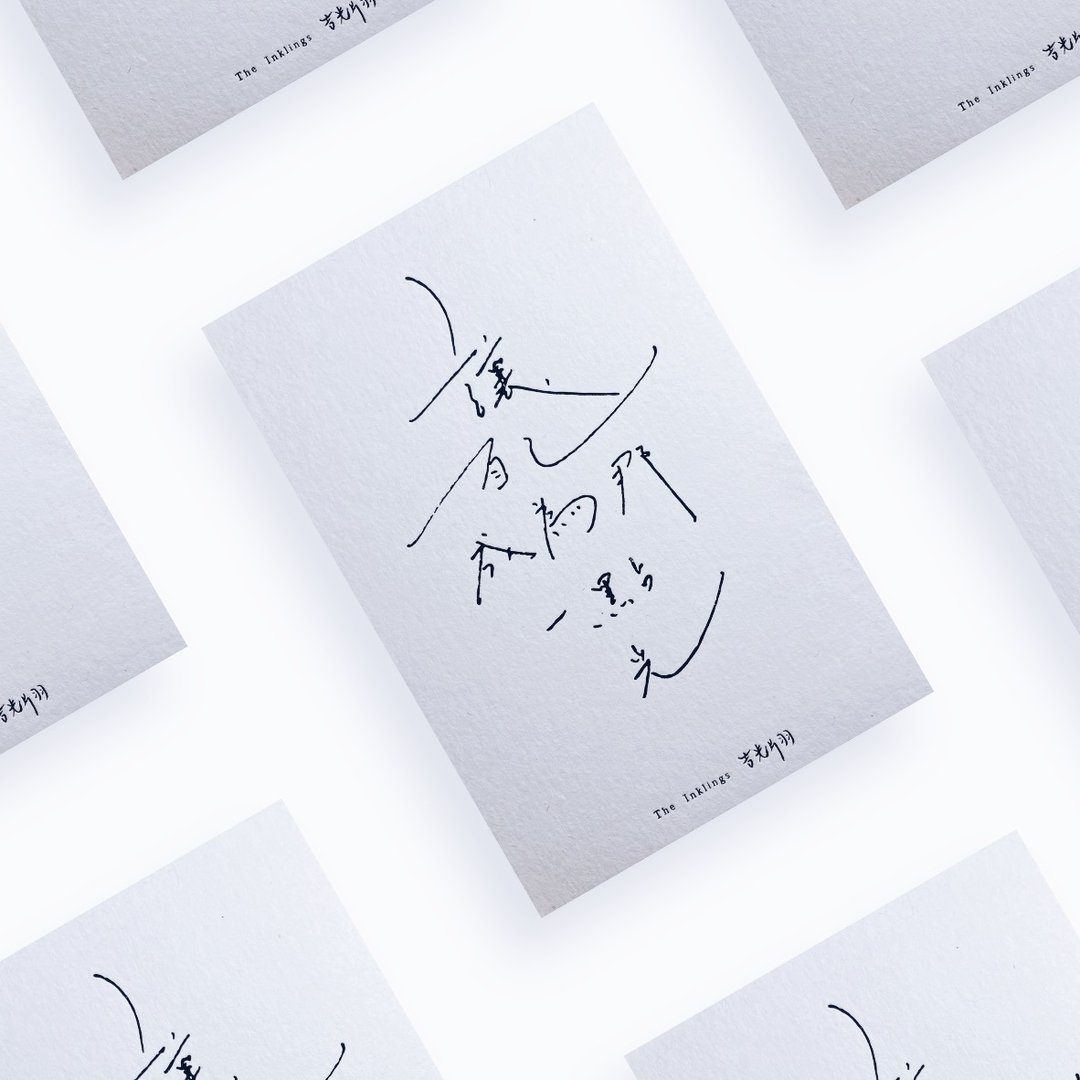 The Inklings 吉光片羽
The Inklings 吉光片
讓
自己
成為那
一點
光
The Inklings 吉光片羽
吉光片羽
讓